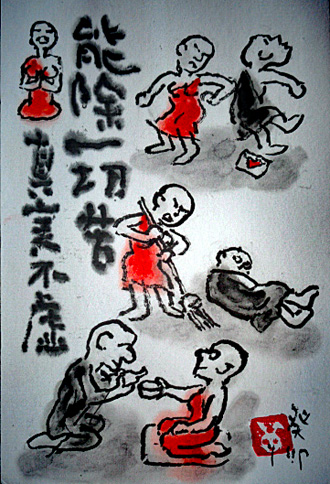 能除一切苦
真実不虚